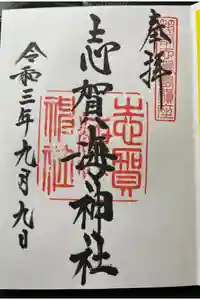 奉拝
志賀海神社
令和三年九月九日
志賀海神社